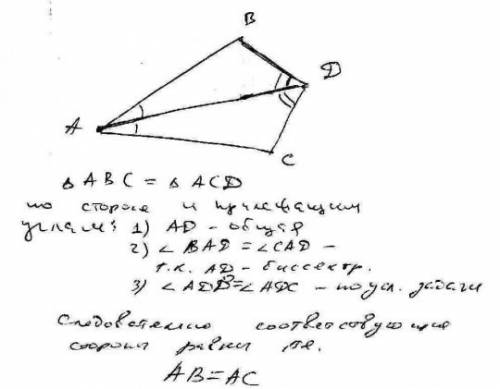 B
D
A
C
Δ ABC = Δ ACD
по стороне и прилежащим
углам: 1) AD - общая
2) ∠ BAD = ∠CAD -
т.к. AD - биссектр.
3) ∠ ADB = ∠ADC - по усл. задачи
Следовательно соответствующие
стороны равны т.е.
AB = AC